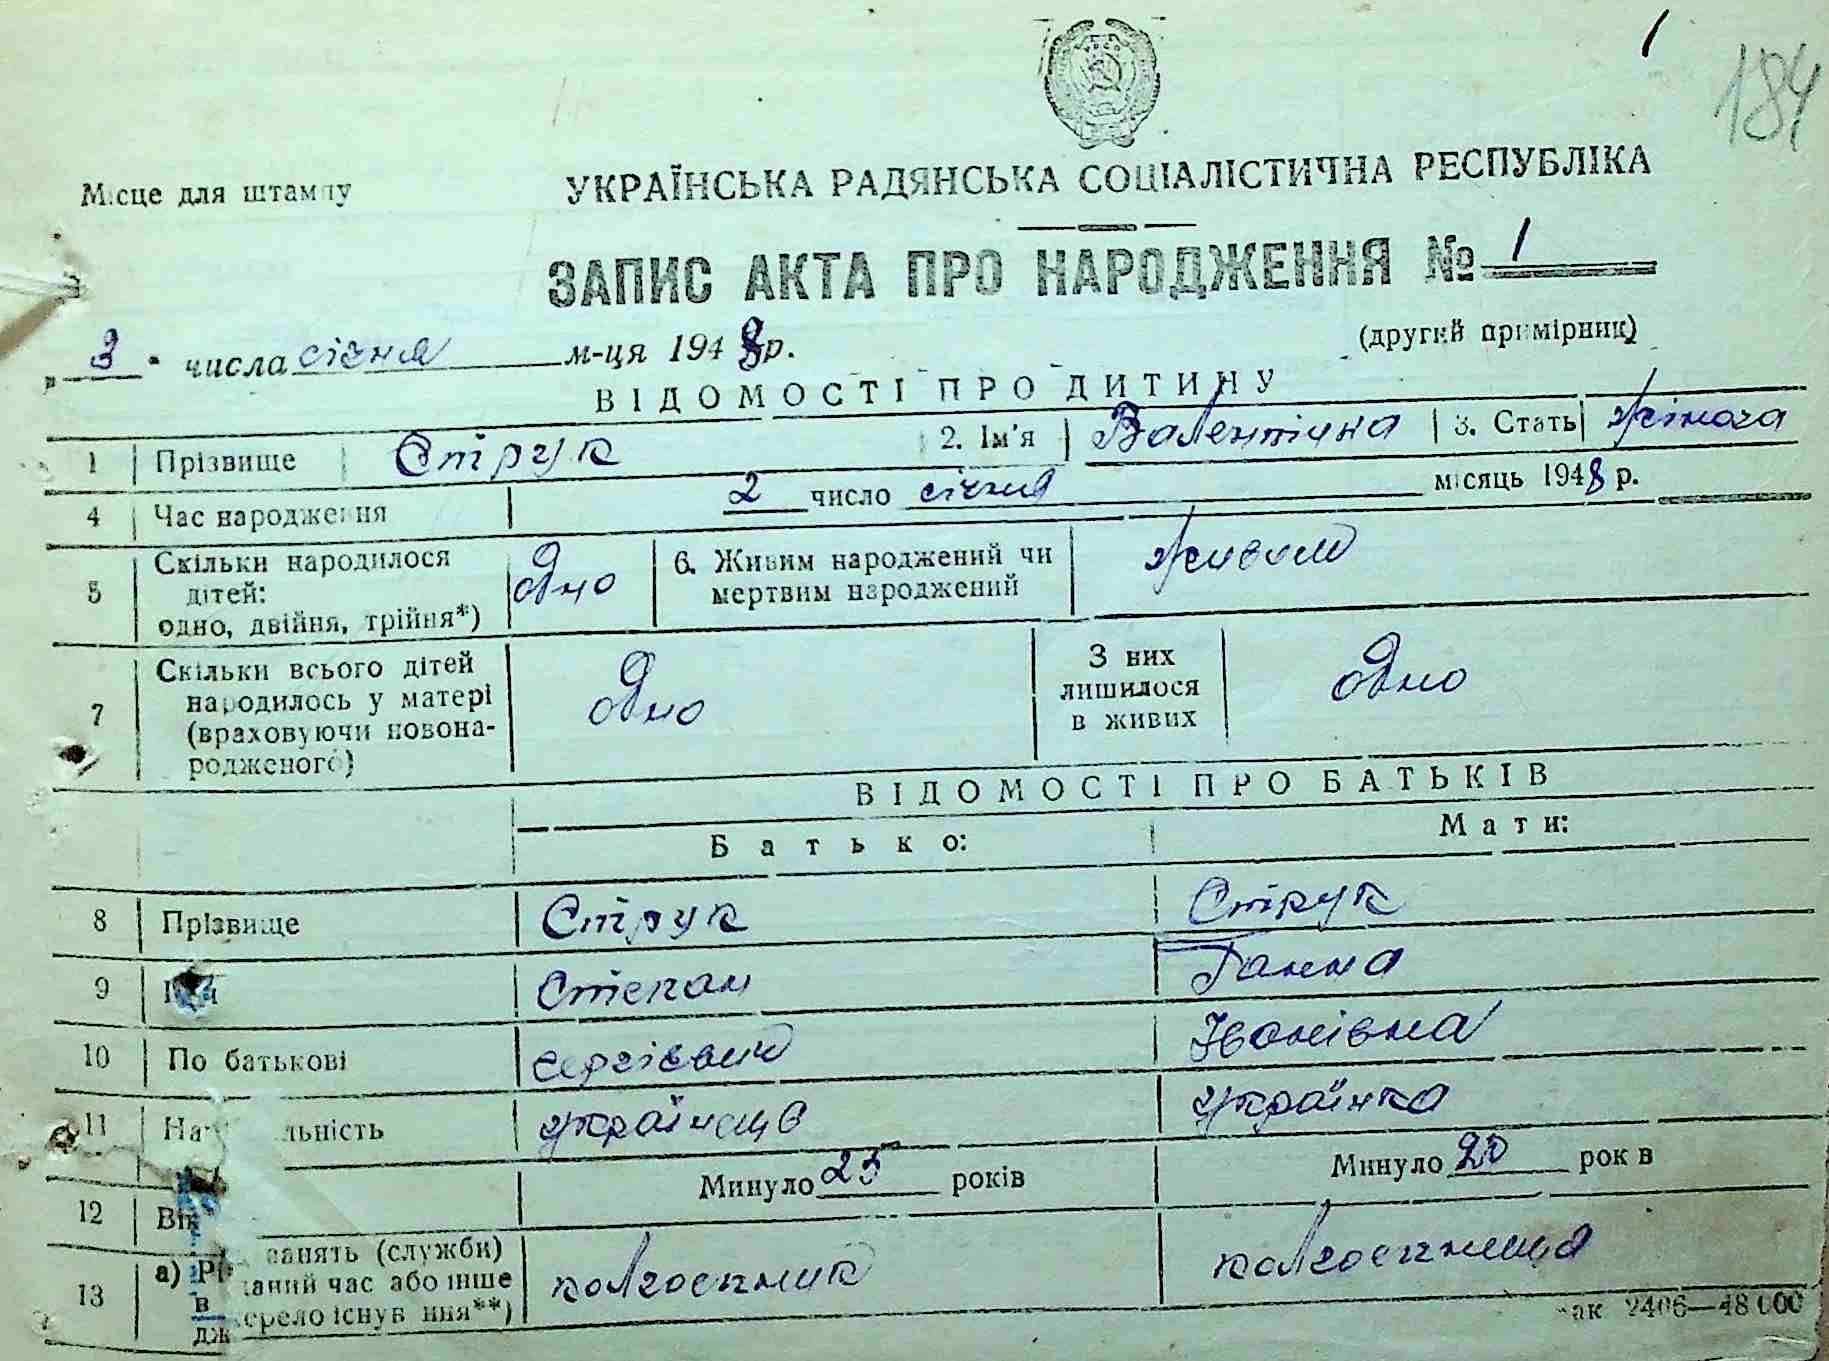 1
184
УРСР
Місце для штампу
УКРАЇНСЬКА РАДЯНСЬКА СОЦІАЛІСТИЧНА РЕСПУБЛІКА
ЗАПИС АКТА ПРО НАРОДЖЕННЯ № 1
(другий примірник)
„ 3 " числа січня м-ця 1948 р.
ВІДОМОСТІ ПРО ДИТИНУ
1 Прізвище Стірук 2. Ім'я Валентіна 3. Стать жіноча
4 Час народження 2 число січня місяць 1948 р.
5 Скільки народилося дітей: одно, двійня, трійня*) одно 6. Живим народжений чи мертвим народжений живим
7 Скільки всього дітей народилось у матері (враховуючи новонародженого) одно З них лишилося в живих одно
ВІДОМОСТІ ПРО БАТЬКІВ
Батько: Мати:
8 Прізвище Стірук Стірук
9 Степан Ганна
10 По батькові сергієвич Іванівна
11 На льність українець українка
12 Вік Минуло 25 років Минуло 20 рок в
13 а) Р занять (служби) в даний час або інше джерело існув ння**) колгоспник колгоспниця
ак 2406—48000